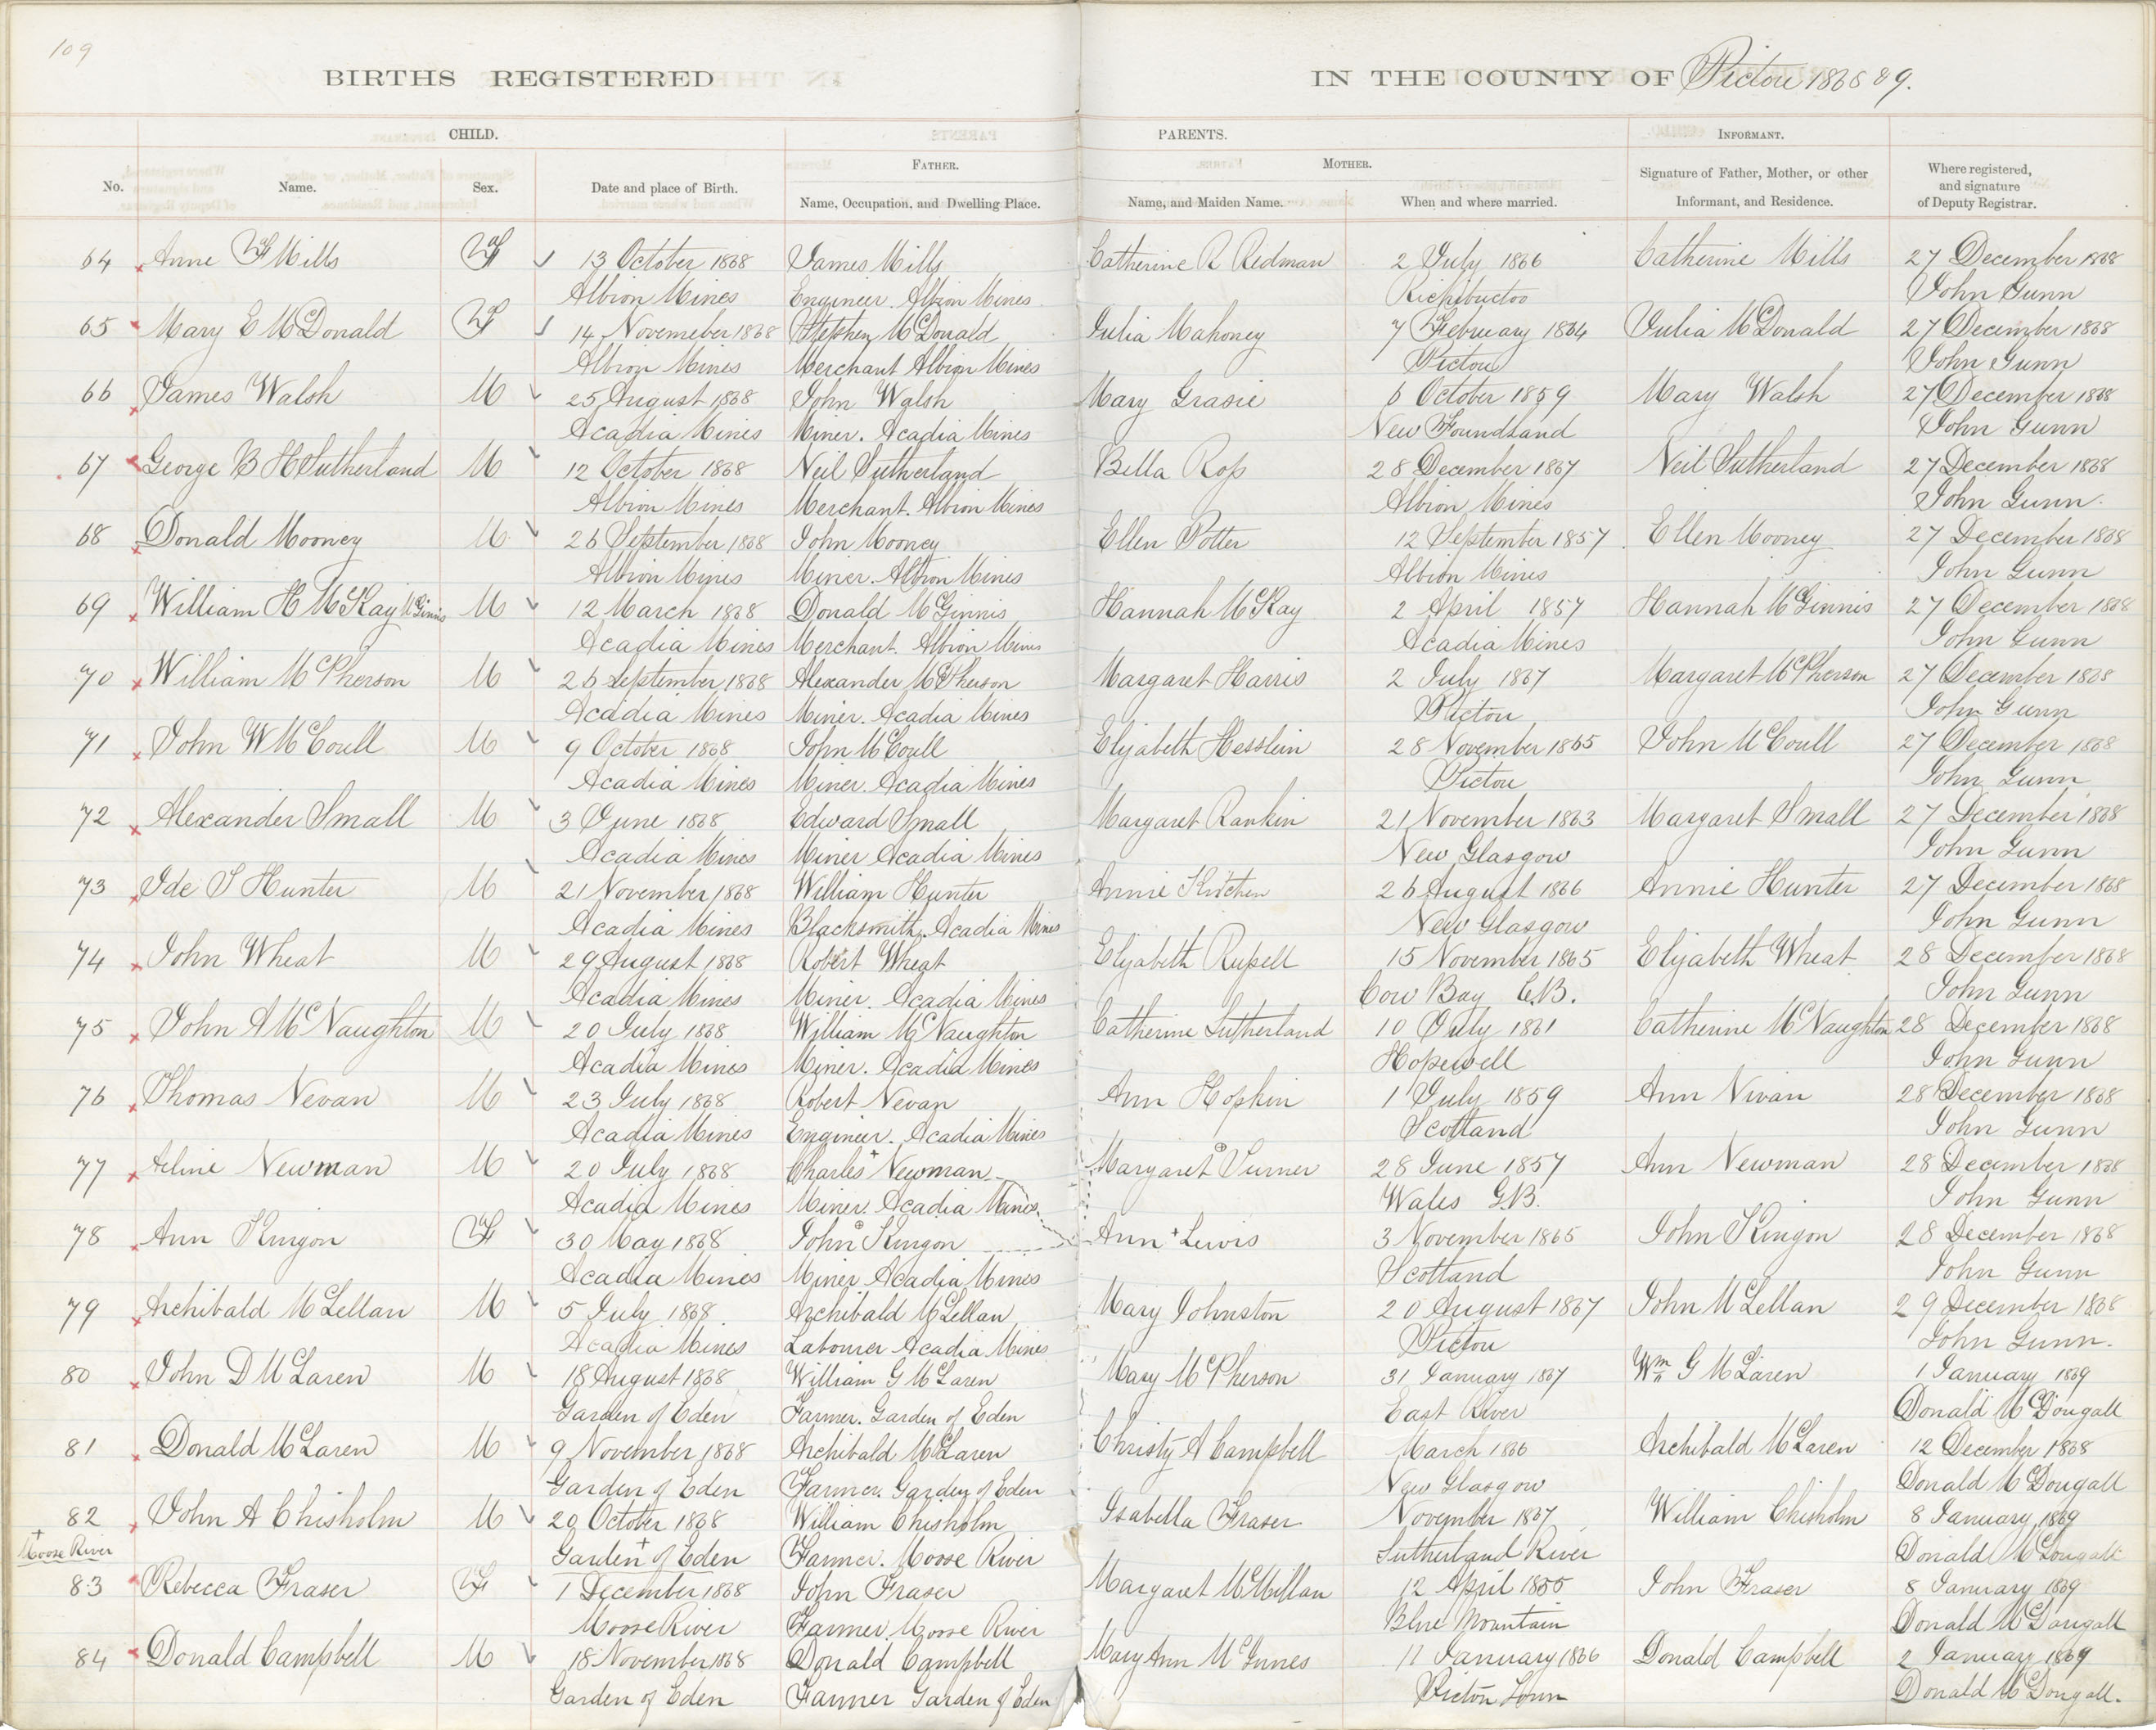 109
BIRTHS REGISTERED IN THE COUNTY OF Pictou 1868 89.
CHILD. PARENTS. INFORMANT.
FATHER. MOTHER.
No. Name. Sex. Date and place of Birth. Name, Occupation, and Dwelling Place. Name, and Maiden Name. When and where married. Signature of Father, Mother, or other Informant, and Residence. Where registered, and signature of Deputy Registrar.
64 Anne F Mills F 13 October 1868 James Mills Catherine R Redman 2 July 1866 Catherine Mills 27 December 1868
Albion Mines Engineer. Albion Mines Richibuctoo John Gunn
65 Mary E McDonald F 14 Novemeber 1868 Stephen McDonald Julia Mahoney 7 February 1864 Julia McDonald 27 December 1868
Albion Mines Merchant Albion Mines Pictou John Gunn
66 James Walsh M 25 August 1868 John Walsh Mary Grasie 6 October 1859 Mary Walsh 27 December 1868
Acadia Mines Miner. Acadia Mines New Foundland John Gunn
67 George B H Sutherland M 12 October 1868 Neil Sutherland Bella Ross 28 December 1867 Neil Sutherland 27 December 1868
Albion Mines Merchant. Albion Mines Albion Mines John Gunn.
68 Donald Mooney M 26 September 1868 John Mooney Ellen Potter 12 September 1857 Ellen Mooney 27 December 1868
Albion Mines Miner. Albion Mines Albion Mines John Gunn
69 William H McKay McGinnis M 12 March 1868 Donald McGinnis Hannah McKay 2 April 1857 Hannah McGinnis 27 December 1868
Acadia Mines Merchant. Albion Mines Acadia Mines John Gunn
70 William McPherson M 26 September 1868 Alexander McPherson Margaret Harris 2 July 1867 Margaret McPherson 27 December 1868
Acadia Mines Miner. Acadia Mines Pictou John Gunn
71 John W McCoull M 9 October 1868 John McCoull Elizabeth Hesslein 28 November 1865 John McCoull 27 December 1868
Acadia Mines Miner. Acadia Mines Pictou John Gunn
72 Alexander Small M 3 June 1868 Edward Small Margaret Rankin 21 November 1863 Margaret Small 27 December 1868
Acadia Mines Miner Acadia Mines New Glasgow John Gunn
73 Ide S Hunter M 21 November 1868 William Hunter Annie Kitchen 26 August 1866 Annie Hunter 27 December 1868
Acadia Mines Blacksmith. Acadia Mines New Glasgow John Gunn
74 John Wheat M 29 August 1868 Robert Wheat Elizabeth Russell 15 November 1865 Elizabeth Wheat 28 December 1868
Acadia Mines Miner. Acadia Mines Cow Bay C.B. John Gunn
75 John A McNaughton M 20 July 1868 William McNaughton Catherine Sutherland 10 July 1861 Catherine McNaughton 28 December 1868
Acadia Mines Miner. Acadia Mines Hopewell John Gunn
76 Thomas Nevan M 23 July 1868 Robert Nevan Ann Hopkin 1 July 1859 Ann Nivan 28 December 1868
Acadia Mines Engineer. Acadia Mines Scotland John Gunn
77 Aline Newman M 20 July 1868 Charles + Newman Margaret Turner 28 June 1857 Ann Newman 28 December 1868
Acadia Mines Miner. Acadia Mines. Wales G.B. John Gunn
78 Ann Kingon F 30 May 1868 John Kingon Ann + Lewis 3 November 1865 John Kingon 28 December 1868
Acadia Mines Miner Acadia Mines Scotland John Gunn
79 Archibald McLellan M 5 July 1868 Archibald McLellan Mary Johnston 20 August 1867 John McLellan 29 December 1868
Acadia Mines Labourer Acadia Mines Pictou John Gunn.
80 John D McLaren M 18 August 1868 William G McLaren Mary McPherson 31 January 1867 Wm G McLaren 1 January 1869
Garden of Eden Farmer. Garden of Eden East River Donald McDougall
81 Donald McLaren M 9 November 1868 Archibald McLaren Christy A Campbell March 1866 Archibald McLaren 12 December 1868
Garden of Eden Farmer. Garden of Eden New Glasgow Donald McDougall
82 John A Chisholm M 20 October 1868 William Chisholm Isabella Fraser November 1867 William Chisholm 8 January 1869
+ Moose River Garden + of Eden Farmer. Moose River Sutherland River Donald McDougall
83 Rebecca Fraser F 1 December 1868 John Fraser Margaret McMillan 12 April 1855 John Fraser 8 January 1869
Moose River Farmer Moose River Blue Mountain Donald McDougall
84 Donald Campbell M 18 November 1868 Donald Campbell Mary Ann McInnes 11 January 1866 Donald Campbell 2 January 1869
Garden of Eden Farmer Garden of Eden Pictou Town Donald McDougall.